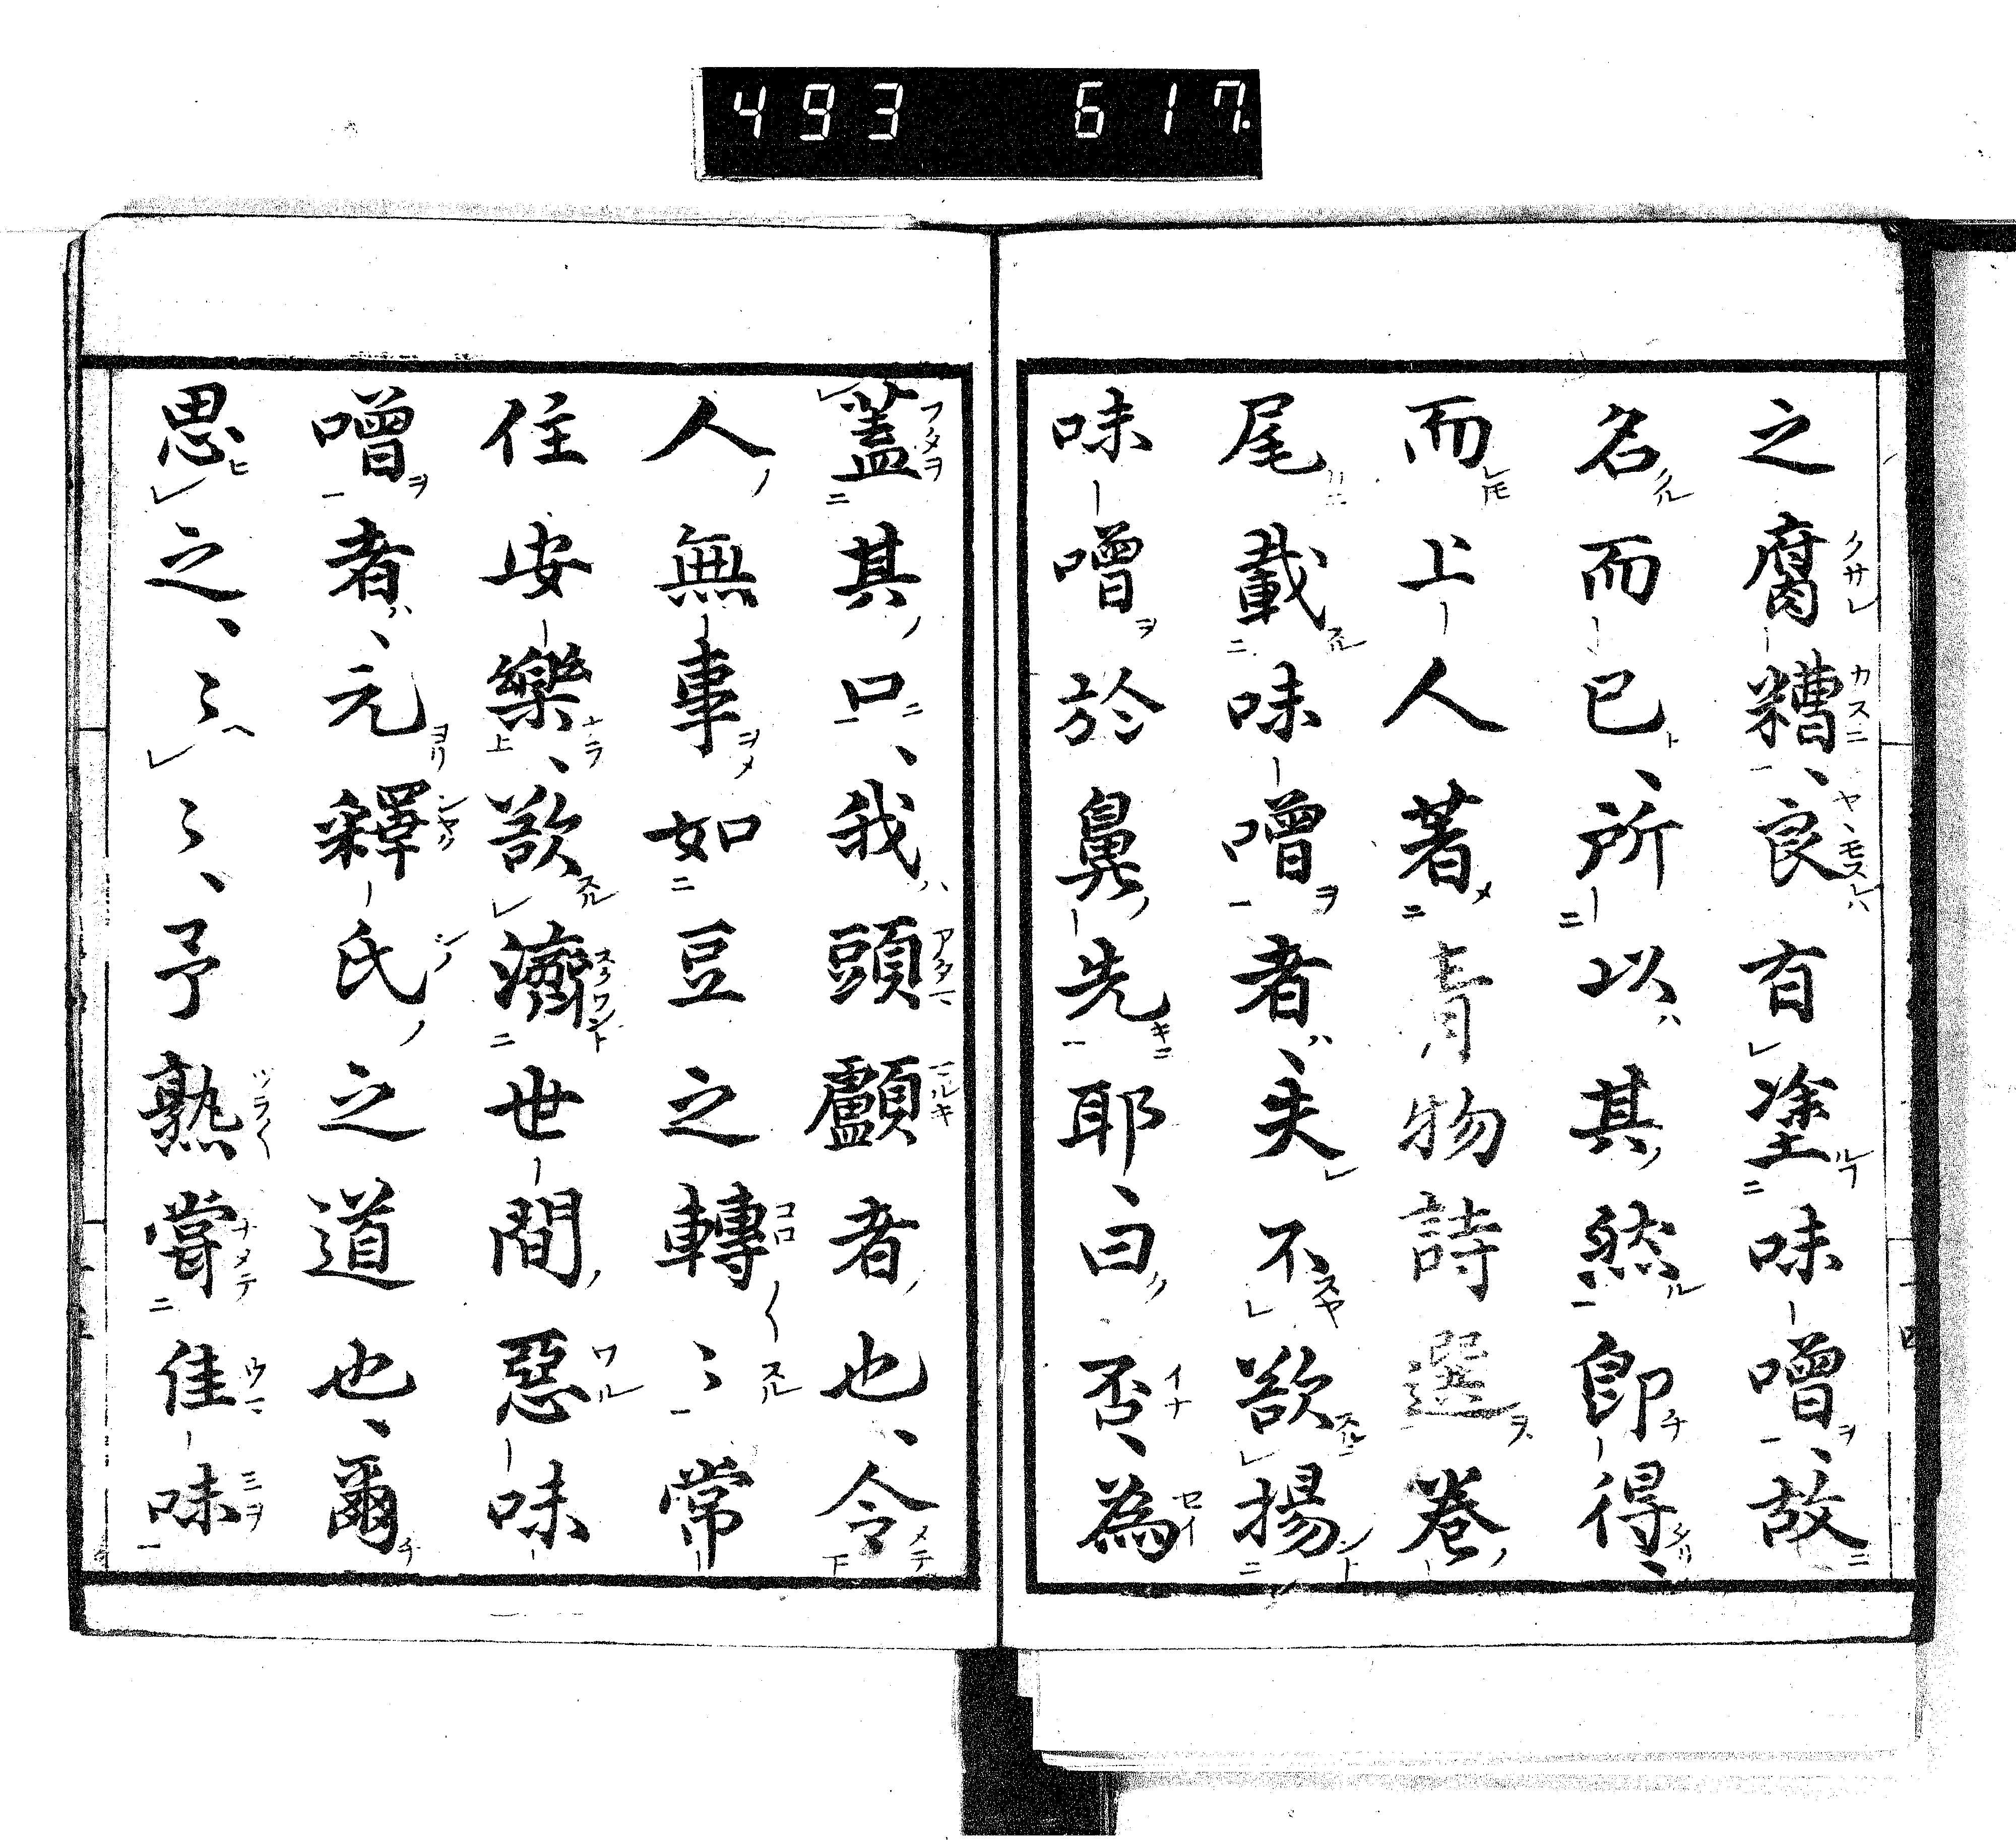 493 617.
之腐糟、良有塗味噌、故
名而已、所以其然即得、
而上人著青物詩選卷
尾載味噌者、夫不欲揚
味噌於鼻先耶、曰否、為
蓋其口、我頭顱者也、令
人無事如豆之轉〻常
住安樂、欲濟世間惡味
噌者、元釋氏之道也、爾
思之、〻〻、予熟嘗佳味